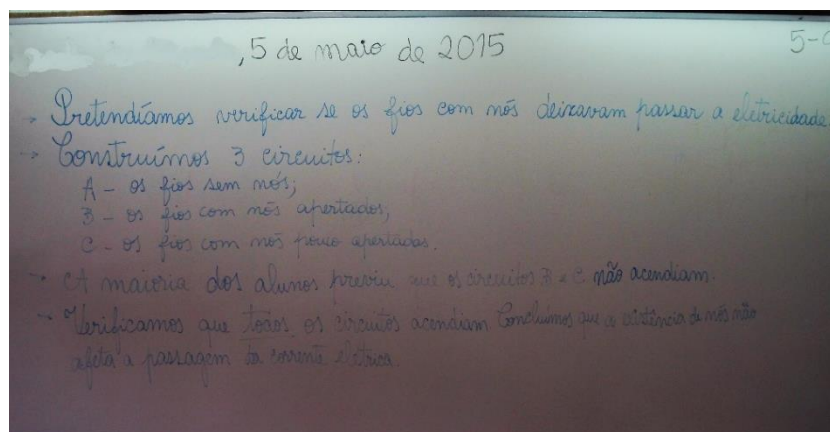 , 5 de maio de 2015
5-
→ Pretendíamos verificar se os fios com nós deixavam passar a eletricidade
→ Construímos 3 circuitos:
A - os fios sem nós;
B - os fios com nós apertados;
C - os fios com nós pouco apertados.
→ A maioria dos alunos previu que os circuitos B e C não acendiam.
→ Verificamos que todos os circuitos acendiam Concluímos que a existência de nós não
afeta a passagem da corrente elétrica.